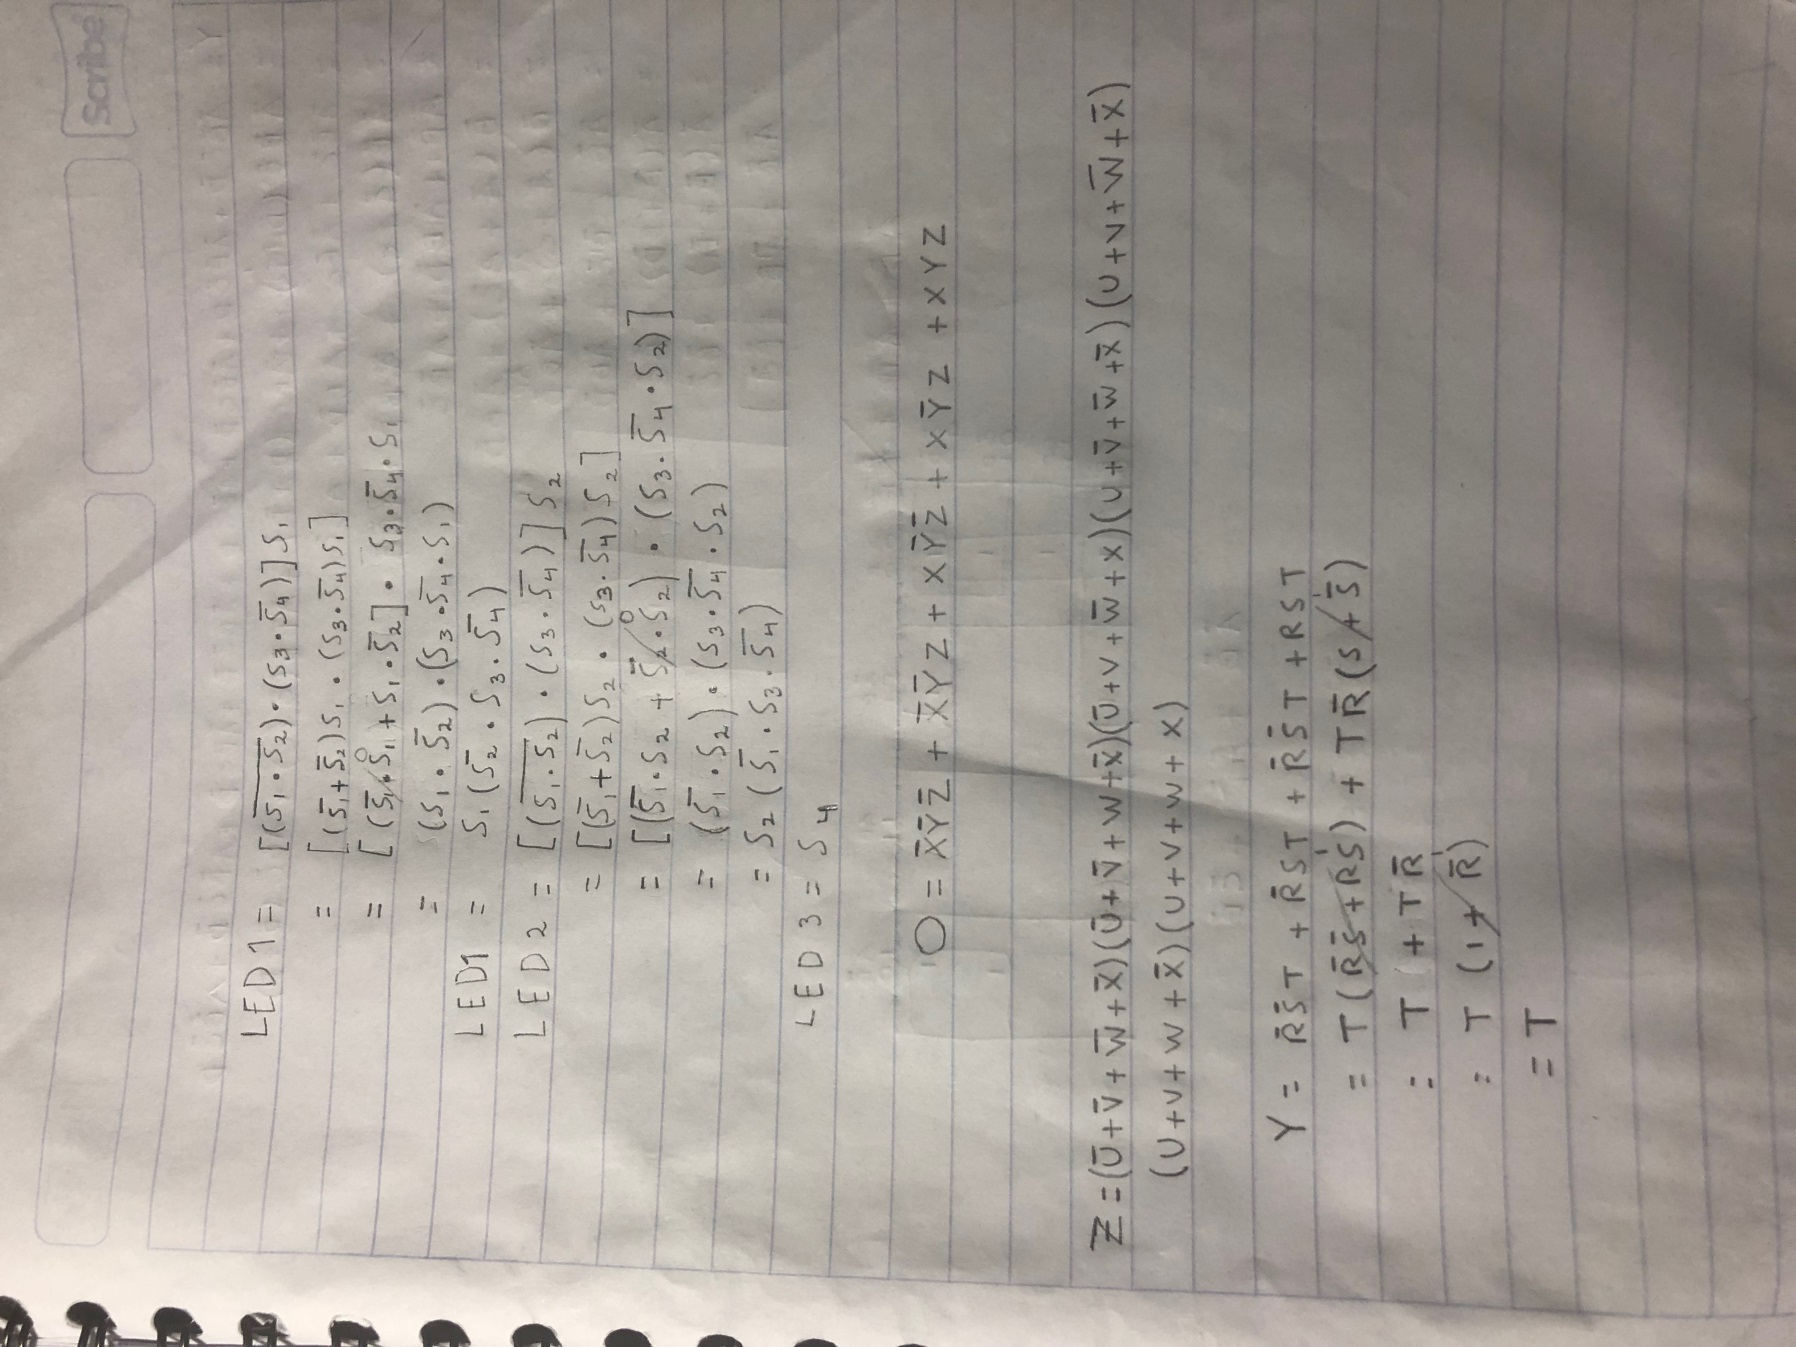 Scribe
LED1 = [(\overline{S₁·S₂})·(S₃·S̄₄)]S₁
= [(S̄₁+S̄₂)S₁·(S₃·S̄₄)S₁]
= [(S̄₁·S₁⁰+S₁·S̄₂]·S₃·S̄₄·S₁
= (S₁·S̄₂)·(S₃·S̄₄·S₁)
LED1 = S₁(S̄₂·S₃·S̄₄)
LED2 = [(\overline{S₁·S₂})·(S₃·S̄₄)]S₂
= [(S̄₁+S̄₂)S₂·(S₃·S̄₄)S₂]
= [(S̄₁·S₂+S̄₂·S₂⁰)·(S₃·S̄₄·S₂)]
= (S̄₁·S₂)·(S₃·S̄₄·S₂)
= S₂(S̄₁·S₃·S̄₄)
LED3 = S₄
O = X̄ȲZ̄ + X̄ȲZ + XȲZ̄ + XȲZ + XYZ
Z = (Ū+V̄+W̄+X̄)(Ū+V̄+W+X̄)(Ū+V+W̄+X)(U+V̄+W̄+X̄)(U+V+W̄+X̄)
(U+V+W+X̄)(U+V+W+X)
Y = R̄S̄T + R̄ST + R̄S̄T + RST
= T(R̄S̄+RS) + TR̄(S+S̄)
= T + TR̄
= T(1+R̄)
= T